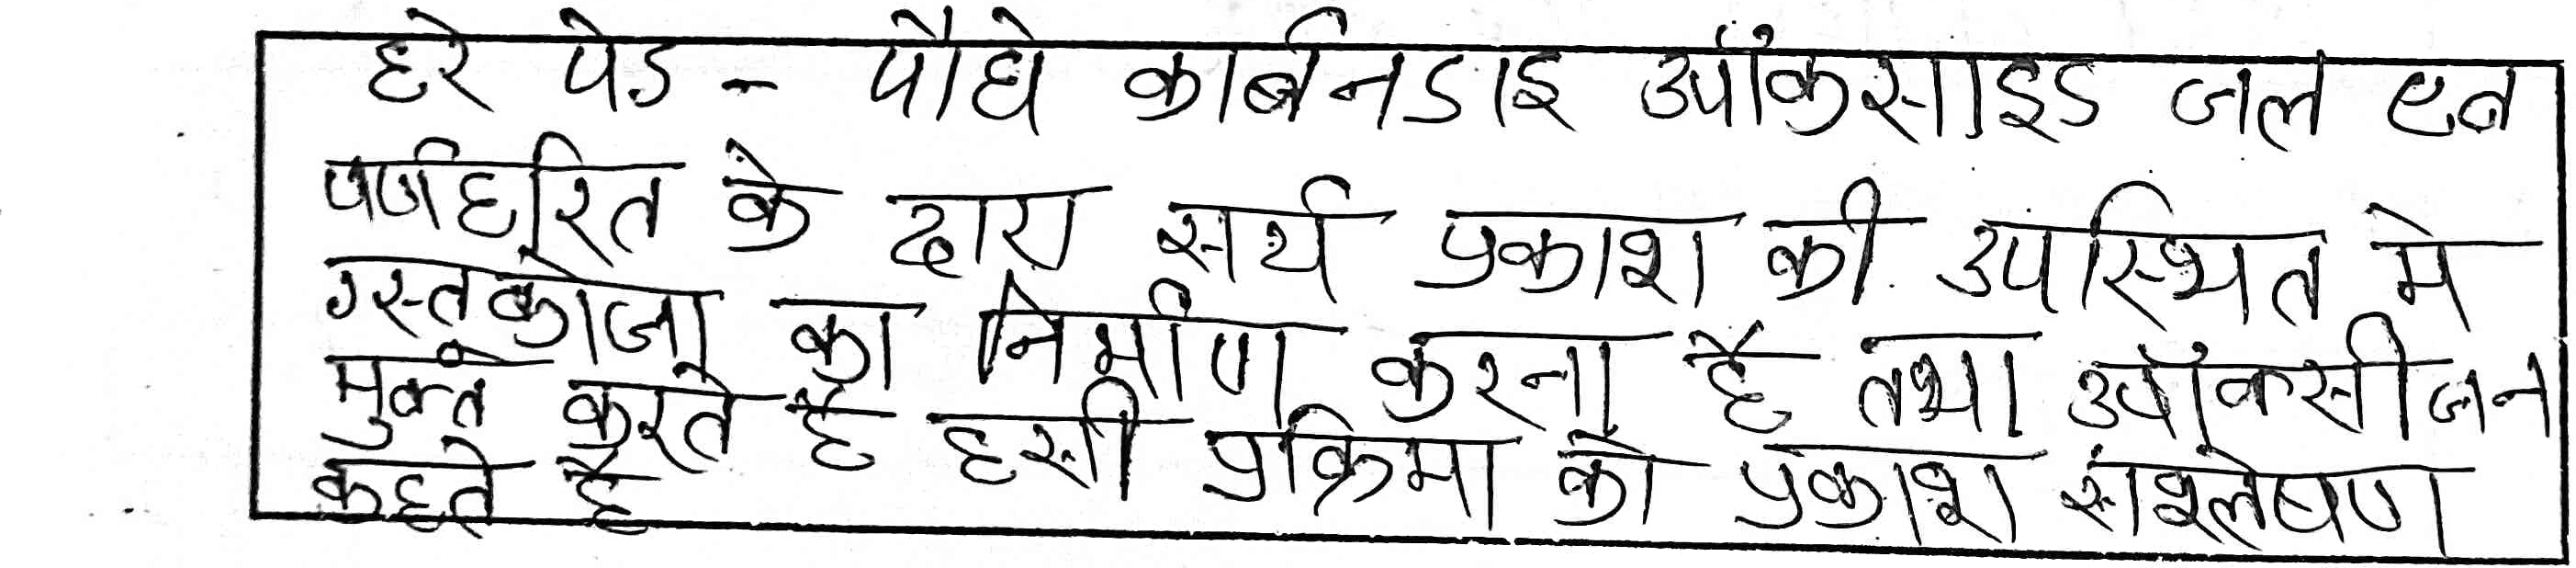 हरे पेड - पौधे कार्बनडाइ ऑकसाइड जल एव
पर्णहरित के द्वारा सर्य प्रकाश की उपस्थित मे
ग्लतकोजा का निर्माण करना है तथा ऑक्सीजन
मुक्त करते है इसी प्रक्रिमा को प्रकाश संश्लेषण
कहते है